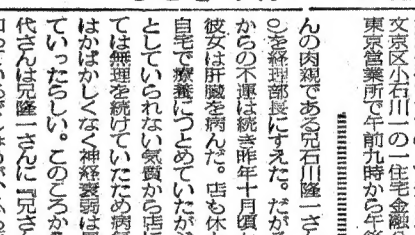 文京区小石川一の一住宅金融公
東京営業所で午前九時から午後
んの肉親である兄石川隆一さ
を経理部長にすえた。だが
からの不運は続き昨年十月頃
彼女は肝臓を病んだ。店も休
自宅で療養につとめていたが
としていられない気質から店
ては無理を続けていたため病
はかばかしくなく神経衰弱は
ていったらしい。このころか
代さんは兄隆一さんに『兄さ